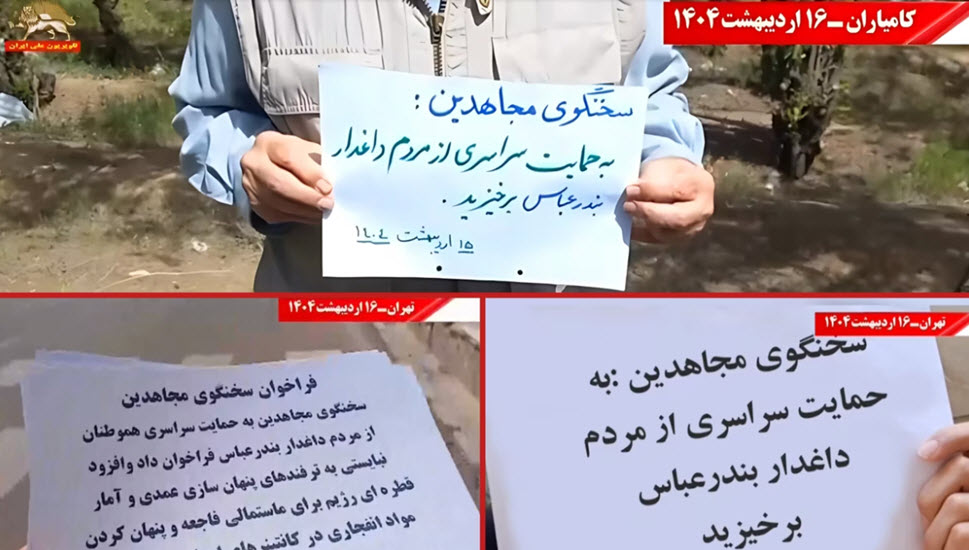 سیمای آزادی
تلویزیون ملی ایران
کامیاران-۱۶اردیبهشت۱۴۰۴
سخنگوی مجاهدین :
به حمایت سراسری از مردم داغدار
بندرعباس برخیزید .
۱۵ اردیبهشت ۱۴۰۴
تهران-۱۶اردیبهشت۱۴۰۴
فراخوان سخنگوی مجاهدین
سخنگوی مجاهدین به حمایت سراسری هموطنان
از مردم داغدار بندرعباس فراخوان داد وافزود
نبایستی به ترفندهای پنهان سازی عمدی و آمار
قطره ای رژیم برای ماستمالی فاجعه و پنهان کردن
مواد انفجاری در کانتینرهای
تهران-۱۶اردیبهشت۱۴۰۴
سخنگوی مجاهدین :به
حمایت سراسری از مردم
داغدار بندرعباس
برخیزید